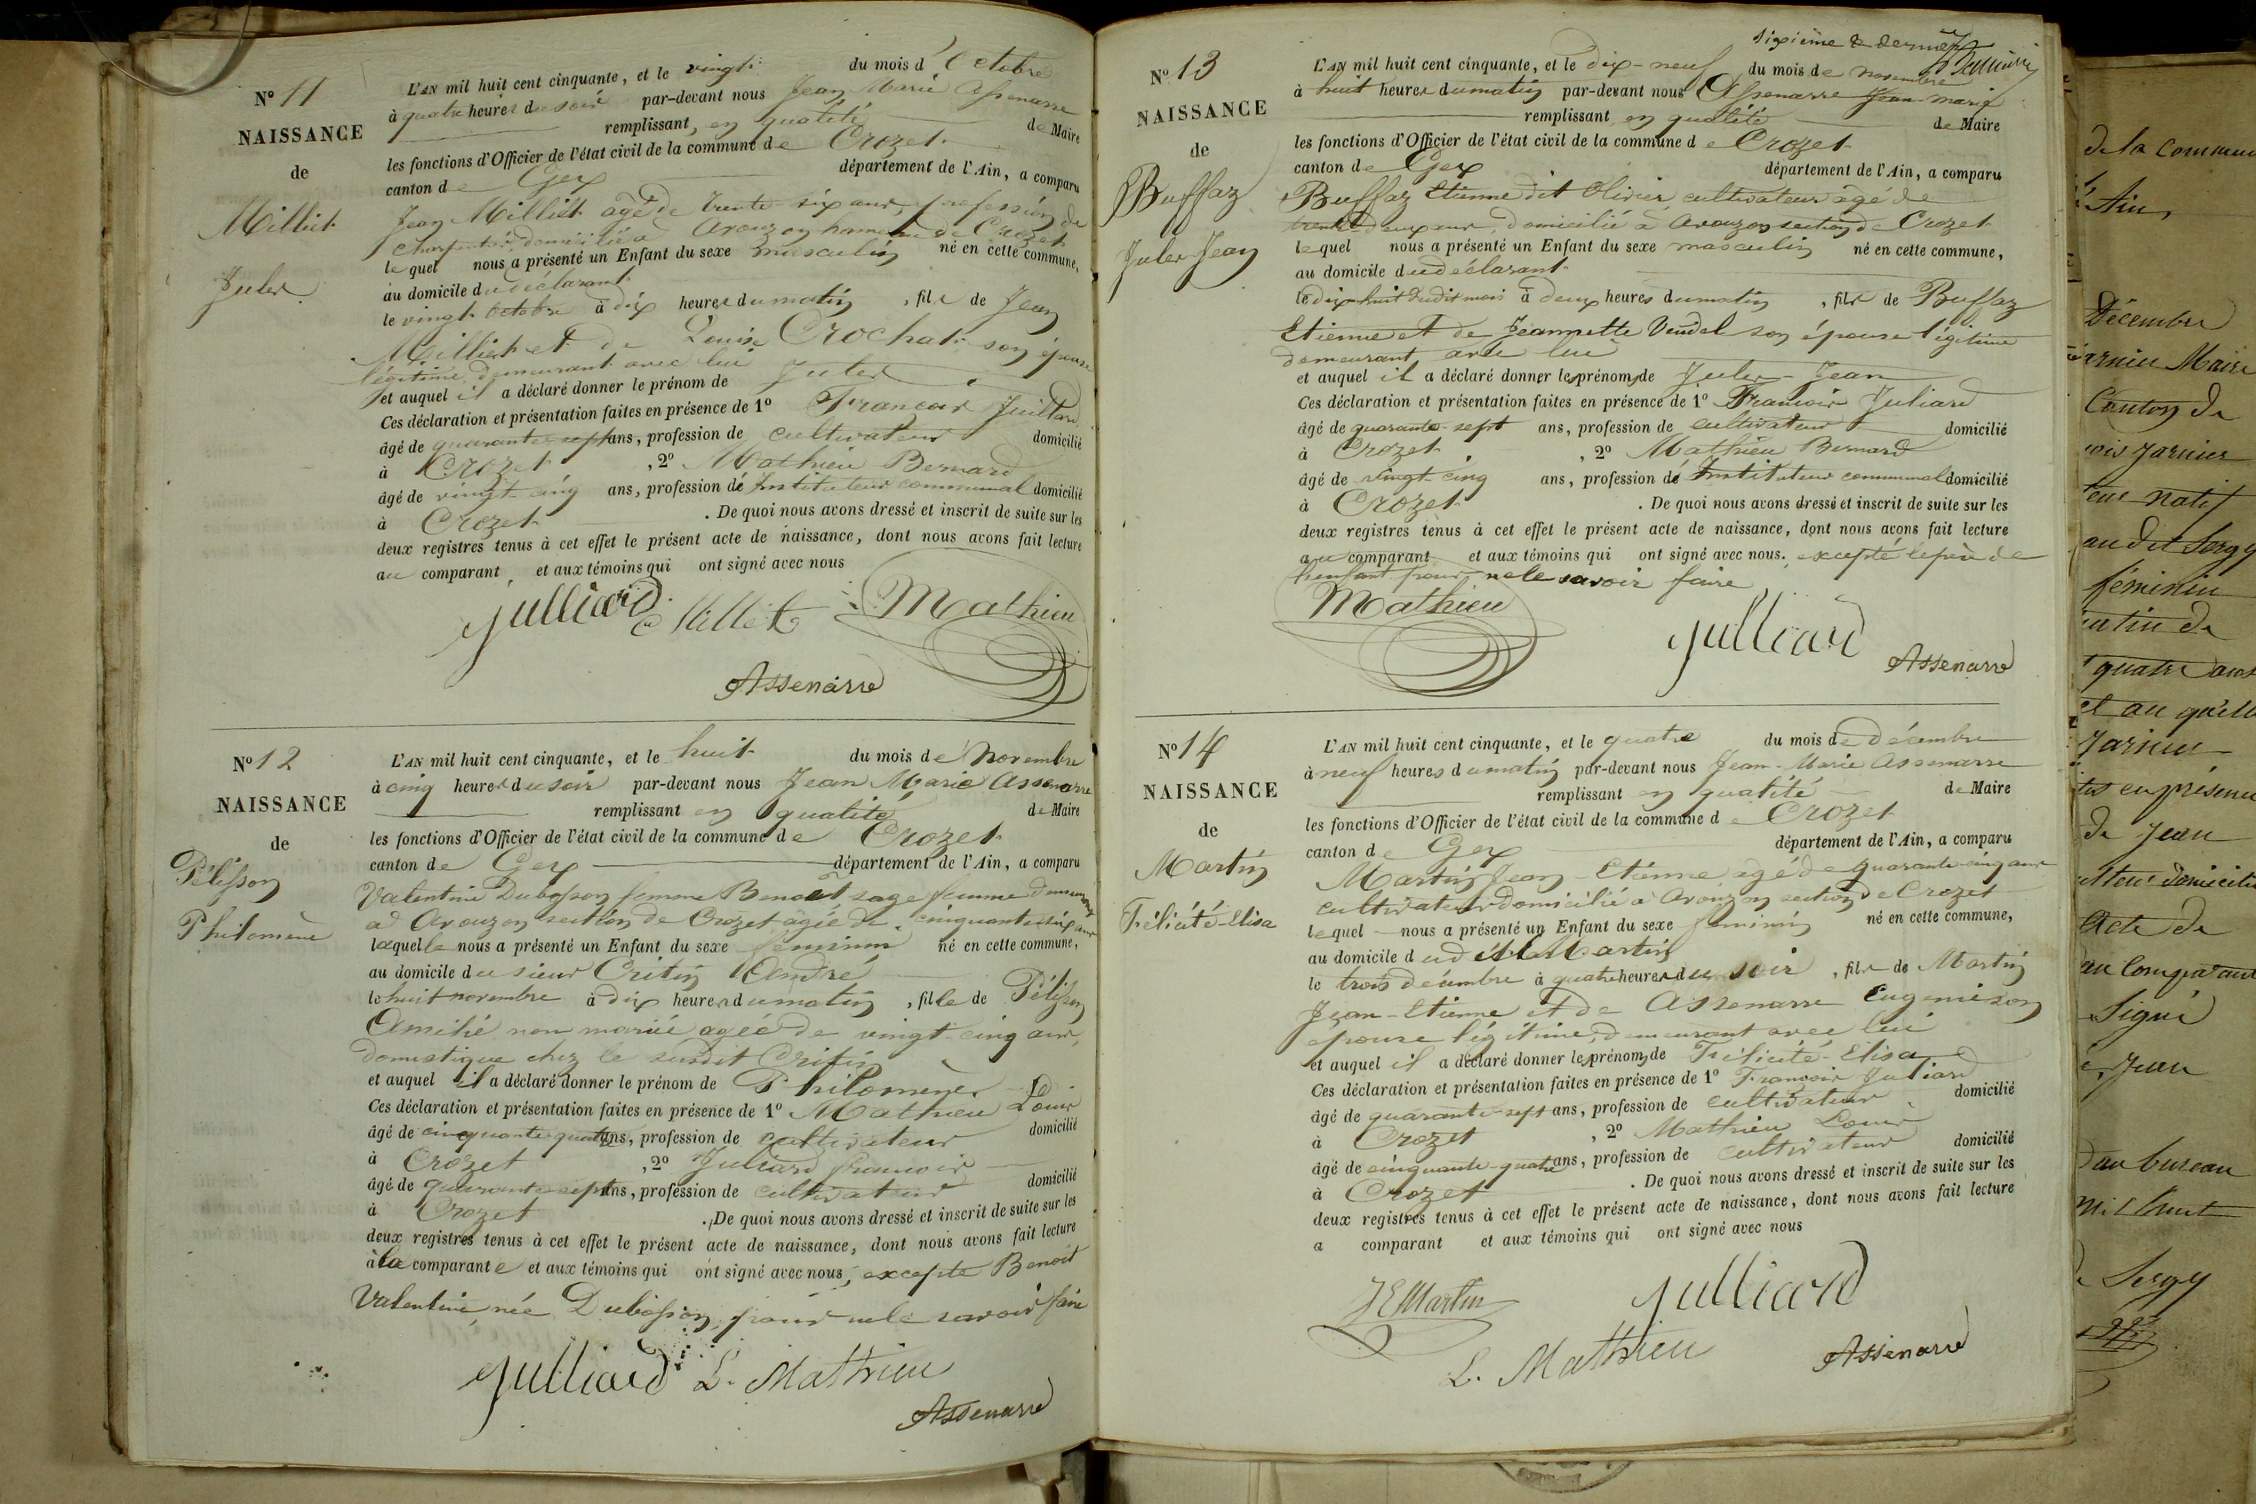 N° 11
NAISSANCE
de
Milliet
Jules
L'AN mil huit cent cinquante, et le vingt du mois d'Octobre
à quatre heures du soir par-devant nous Jean Marie Assenarre
remplissant, en qualité de Maire
les fonctions d'Officier de l'état civil de la commune de Crozet
canton de Gex département de l'Ain, a comparu
Jean Milliet agé de trente six ans, profession de
charpentier domicilié à Avouzon hameau de Crozet
lequel nous a présenté un Enfant du sexe masculin né en cette commune,
au domicile du déclarant
le vingt octobre à dix heures du matin, fils de Jean
Milliet et de Louise Crochat son épouse
légitime demeurant avec lui
et auquel il a déclaré donner le prénom de Jules
Ces déclaration et présentation faites en présence de 1° François Juillard
âgé de quarante sept ans, profession de cultivateur domicilié
à Crozet, 2° Mathieu Bernard
âgé de vingt cinq ans, profession de Instituteur communal domicilié
à Crozet. De quoi nous avons dressé et inscrit de suite sur les
deux registres tenus à cet effet le présent acte de naissance, dont nous avons fait lecture
au comparant et aux témoins qui ont signé avec nous
Julliard Millet Mathieu
Assenarre
N° 12
NAISSANCE
de
Pélisson
Philomène
L'AN mil huit cent cinquante, et le huit du mois de Novembre
à cinq heures du soir par-devant nous Jean Marie Assenarre
remplissant en qualité de Maire
les fonctions d'Officier de l'état civil de la commune de Crozet
canton de Gex département de l'Ain, a comparu
Valentine Dubosson femme Benoit, sage femme demeurant
à Avouzon section de Crozet agée de cinquante six ans
laquelle nous a présenté un Enfant du sexe féminin né en cette commune,
au domicile du sieur Critin André
le huit novembre à dix heures du matin, fille de Pélisson
Amélie non mariée agée de vingt cinq ans,
domestique chez le susdit Critin
et auquel il a déclaré donner le prénom de Philomène
Ces déclaration et présentation faites en présence de 1° Mathieu Louis
âgé de cinquante quatre ans, profession de cultivateur domicilié
à Crozet, 2° Juliard François
âgé de quarante sept ans, profession de cultivateur domicilié
à Crozet. De quoi nous avons dressé et inscrit de suite sur les
deux registres tenus à cet effet le présent acte de naissance, dont nous avons fait lecture
à la comparante et aux témoins qui ont signé avec nous, excepté Benoit
Valentine, née Dubosson, pour ne le savoir faire
Julliard L. Mathieu
Assenarre
sixième & dernier
N° 13
NAISSANCE
de
Buffaz
Jules Jean
L'AN mil huit cent cinquante, et le dix-neuf du mois de novembre
à huit heures du matin par-devant nous Assenarre Jean-marie
remplissant en qualité de Maire
les fonctions d'Officier de l'état civil de la commune de Crozet
canton de Gex département de l'Ain, a comparu
Buffaz Etienne dit Olivier, cultivateur agé de
trente deux ans, domicilié à Avouzon section de Crozet
lequel nous a présenté un Enfant du sexe masculin né en cette commune,
au domicile du déclarant
le dix-huit dudit mois à deux heures du matin, fils de Buffaz
Etienne et de Jeannette Vendel son épouse légitime
demeurant avec lui
et auquel il a déclaré donner les prénoms de Jules-Jean
Ces déclaration et présentation faites en présence de 1° François Juliard
âgé de quarante-sept ans, profession de cultivateur domicilié
à Crozet, 2° Mathieu Bernard
âgé de vingt cinq ans, profession de Instituteur communal domicilié
à Crozet. De quoi nous avons dressé et inscrit de suite sur les
deux registres tenus à cet effet le présent acte de naissance, dont nous avons fait lecture
au comparant et aux témoins qui ont signé avec nous. excepté le père de
l'enfant pour ne le savoir faire
Mathieu
Julliard Assenarre
N° 14
NAISSANCE
de
Martin
Félicité-Elisa
L'AN mil huit cent cinquante, et le quatre du mois de décembre
à neuf heures du matin par-devant nous Jean-Marie Assenarre
remplissant en qualité de Maire
les fonctions d'Officier de l'état civil de la commune de Crozet
canton de Gex département de l'Ain, a comparu
Martin Jean-Etienne agé de quarante cinq ans
cultivateur domicilié à Avouzon section de Crozet
lequel nous a présenté un Enfant du sexe féminin né en cette commune,
au domicile dudit Martin
le trois décembre à quatre heures du soir, fils de Martin
Jean-Etienne et de Assenarre Eugénie son
épouse légitime, demeurant avec lui
et auquel il a déclaré donner les prénoms de Félicité-Elisa
Ces déclaration et présentation faites en présence de 1° François Juliard
âgé de quarante-sept ans, profession de cultivateur domicilié
à Crozet, 2° Mathieu Louis
âgé de cinquante-quatre ans, profession de cultivateur domicilié
à Crozet. De quoi nous avons dressé et inscrit de suite sur les
deux registres tenus à cet effet le présent acte de naissance, dont nous avons fait lecture
a comparant et aux témoins qui ont signé avec nous
J E Martin Julliard
L. Mathieu Assenarre
de la commune
Ain,
Décembre
Maire
Canton de
Jarnier
natif
audit Sergy
féminin
matin de
quatre ans
et au quel
Jarnier
en présence
de Jean
domicilié
Acte de
au Comparant
Signé
Jean
au bureau
mil huit
de Sergy